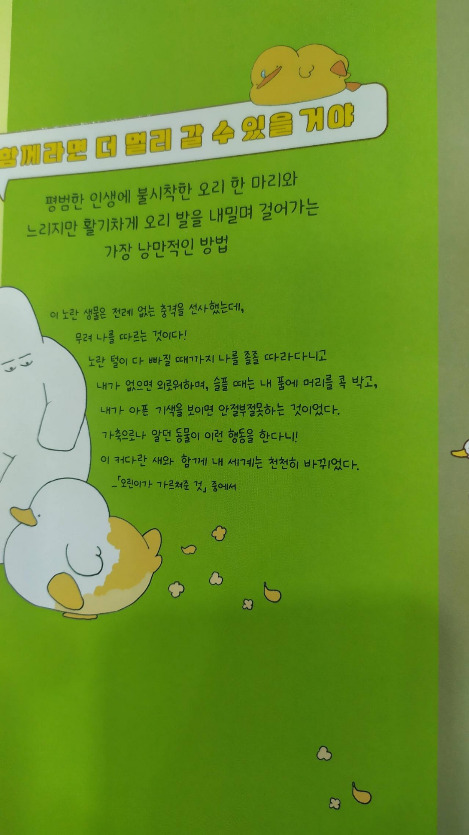 함께라면 더 멀리 갈 수 있을 거야
평범한 인생에 불시착한 오리 한 마리와
느리지만 활기차게 오리 발을 내밀며 걸어가는
가장 낭만적인 방법
이 노란 생물은 전례 없는 충격을 선사했는데,
무려 나를 따르는 것이다!
노란 털이 다 빠질 때까지 나를 졸졸 따라다니고
내가 없으면 외로워하며, 슬플 때는 내 품에 머리를 콕 박고,
내가 아픈 기색을 보이면 안절부절못하는 것이었다.
가축으로나 알던 동물이 이런 행동을 한다니!
이 커다란 새와 함께 내 세계는 천천히 바뀌었다.
_「오린이가 가르쳐준 것」 중에서